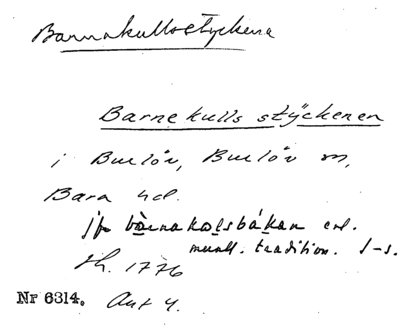 Barnakullsstyckena
Barnekulls stÿckenen
i Burlöv, Burlöv sn,
Bara hd.
jfr bàrnakọlsbákan enl.
muntl. tradition. I-s.
Sk. 1776
Nr 6314. Akt 4.